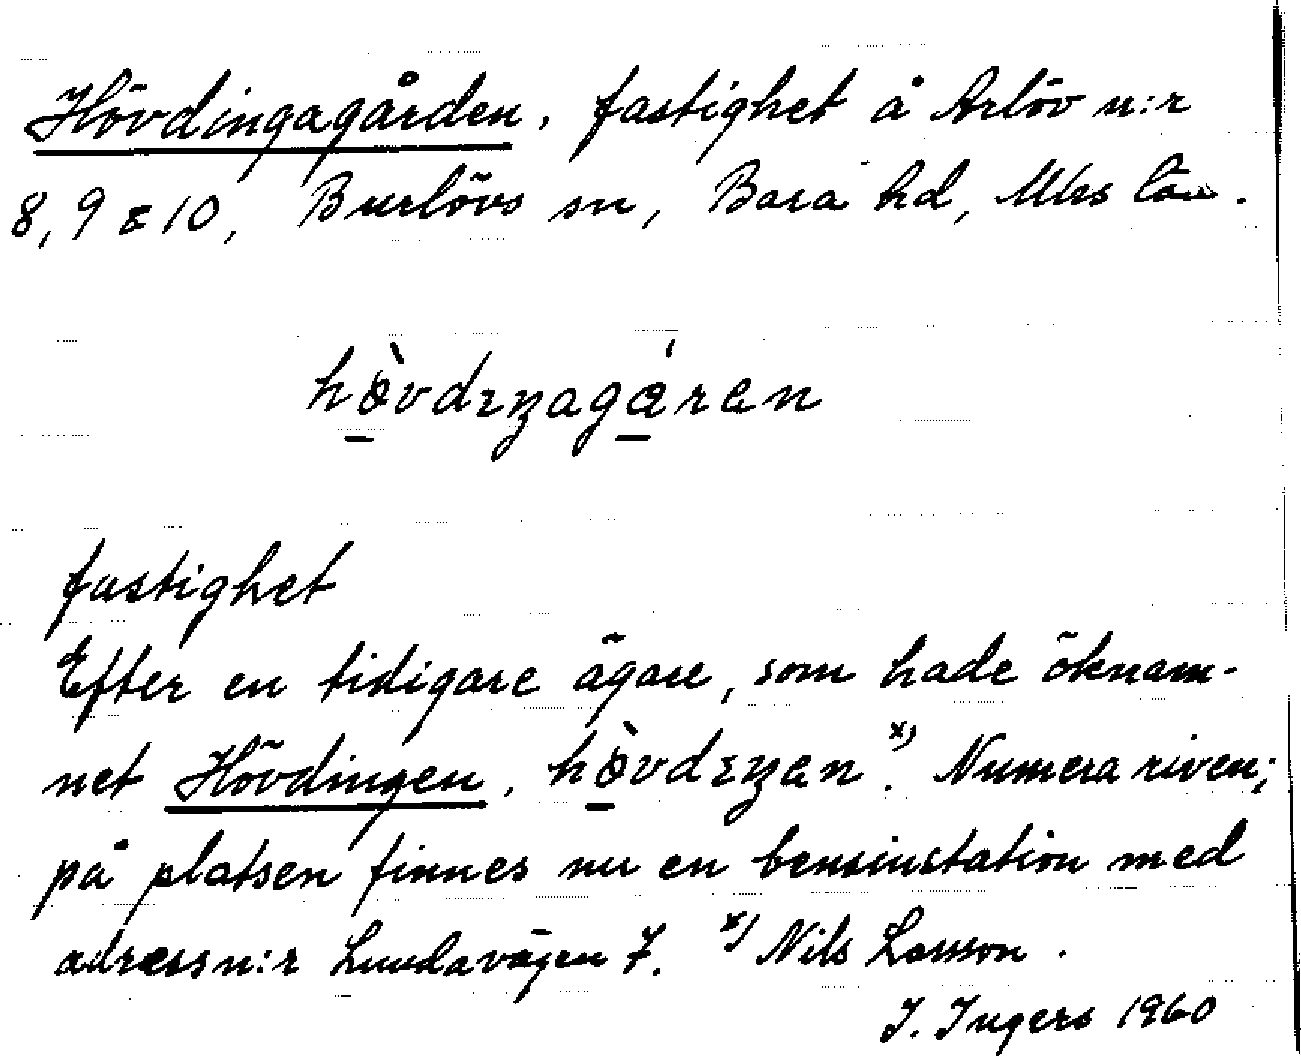 Hövdingagården, fastighet å Arlöv n:r
8, 9 & 10, Burlövs sn, Bara hd, Mhs län.
hövdıŋagåren
fastighet
Efter en tidigare ägare, som hade öknam-
net Hövdingen, hövdıŋen.x) Numera riven;
på platsen finnes nu en bensinstation med
adressn:r Lundavägen 7. x) Nils Larsson.
I. Ingers 1960